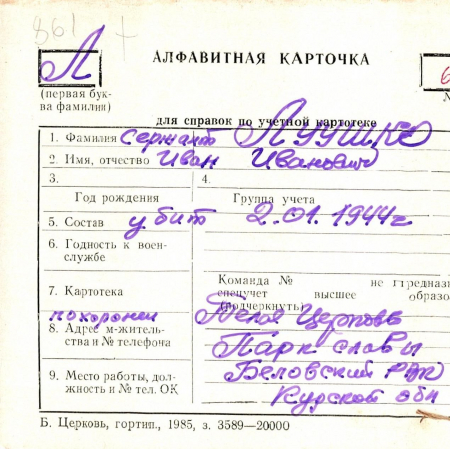 861 +
Л АЛФАВИТНАЯ КАРТОЧКА 6
(первая бук-
ва фамилии)
для справок по учетной картотеке
1. Фамилия Сержант ЛУУШКО
2. Имя, отчество Иван Иванович
3. 4.
Год рождения Группа учета
5. Состав убит 2.01.1944г
6. Годность к воен-
службе
Команда № не предназ
7. Картотека спецучет высшее образо
(подчеркнуть)
похоронен Белая Церковь
8. Адрес м-житель-
ства и № телефона Парк славы
9. Место работы, дол-
жность и № тел. ОК Беловский РВК
Курской обл
Б. Церковь, гортип., 1985, з. 3589—20000